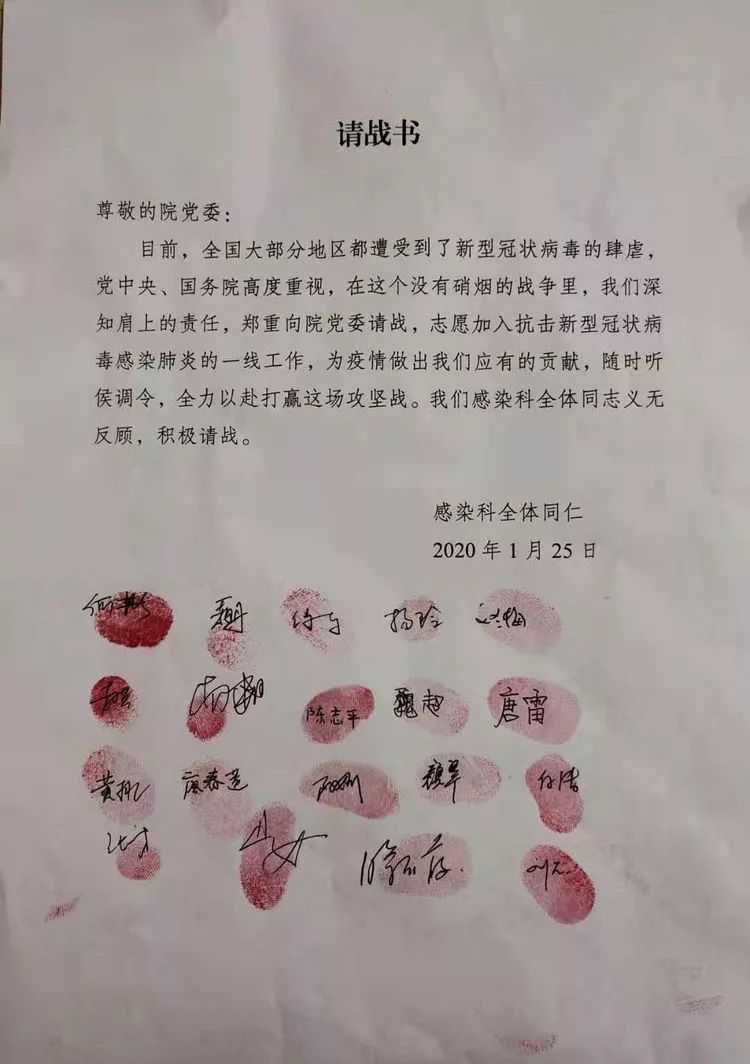 请战书
尊敬的院党委：
目前，全国大部分地区都遭受到了新型冠状病毒的肆虐，
党中央、国务院高度重视，在这个没有硝烟的战争里，我们深
知肩上的责任，郑重向院党委请战，志愿加入抗击新型冠状病
毒感染肺炎的一线工作，为疫情做出我们应有的贡献，随时听
侯调令，全力以赴打赢这场攻坚战。我们感染科全体同志义无
反顾，积极请战。
感染科全体同仁
2020 年 1 月 25 日
杨玲
陈志平 魏超 唐雷